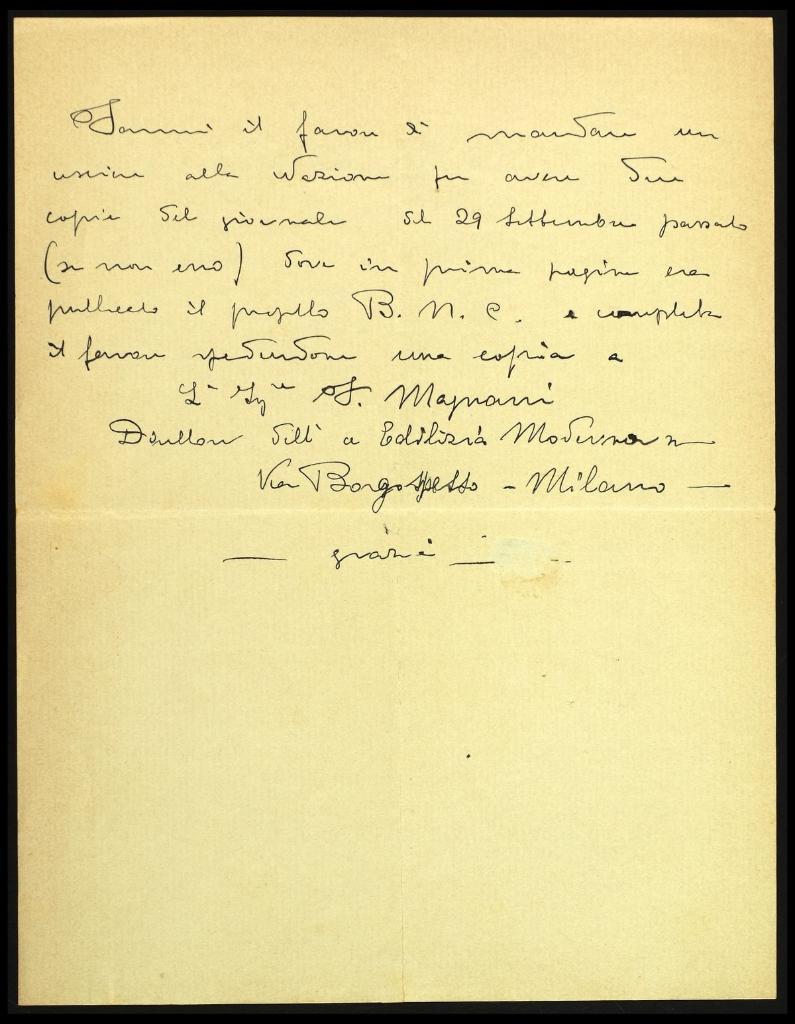 Fammi il favore di mandare un
usciere alla Nazione per avere due
copie del giornale del 29 Settembre passato
(se non erro) dove in prima pagina era
pubblicato il progetto B. N. C. e completa
il favore spedendone una copia a
F. Magnani
Direttore dell' Edilizia Moderna
Via Borgospesso - Milano —
— grazie —